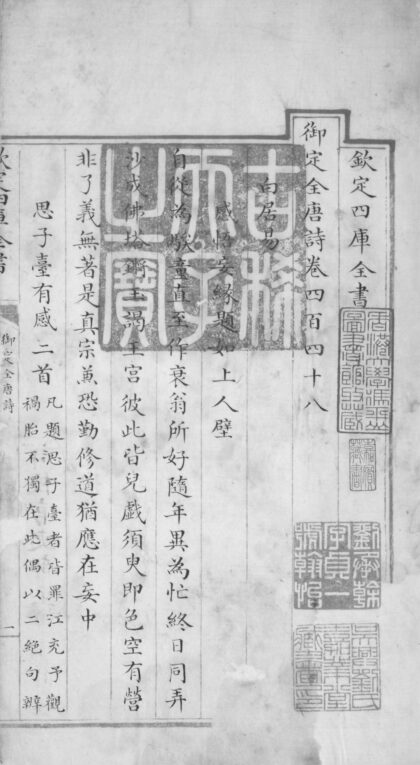 欽定四庫全書
御定全唐詩卷四百四十八
白居易
感悟妄緣題如上人壁
自從為騃童直至作衰翁所好隨年異為忙終日同弄
沙成佛塔鏘玉謁王宮彼此皆兒戲須臾即色空有營
非了義無著是真宗兼恐勤修道猶應在妄中
思子臺有感二首
凡題思子臺者皆罪江充予觀
禍胎不獨在此偶以二絕句辨
欽定四庫全書
御定全唐詩
一
古稀
天子
之寶
劉承榦
字貞一
號翰怡
吳興劉氏
嘉業堂
藏書印